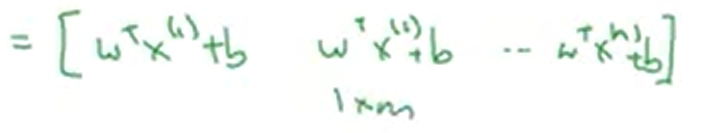 = [ wᵀx⁽¹⁾+b wᵀx⁽²⁾+b ... wᵀx⁽ᵐ⁾+b ]
1×m